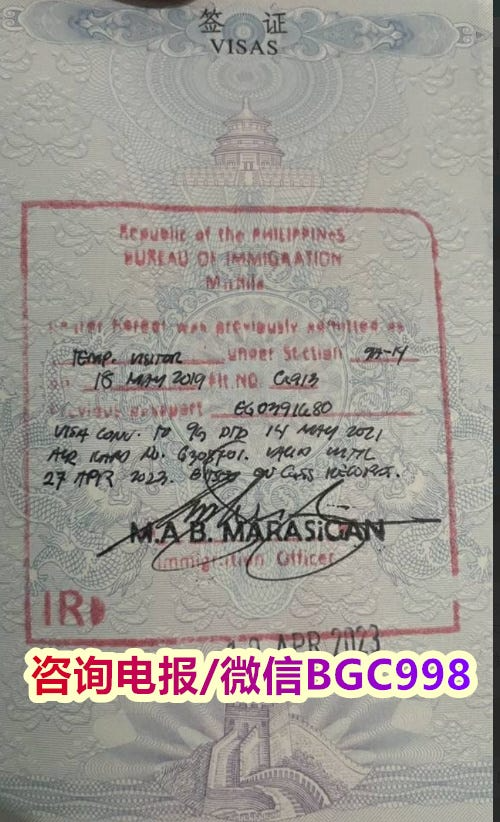 签 证
VISAS
Republic of the PHILIPPINES
BUREAU OF IMMIGRATION
Manila
hereof was previously admitted as
TEMP. VISITOR under Section 9A-14
18 MAY 2019 Flt NO
Previous Passport EG0391680
VISA CONV. TO 9G DTD 14 MAY 2021
VALID UNTIL
27 APR 2023.
M.A B. MARASiGAN
Immigration Officer
IR
APR 2023
咨询电报/微信BGC998